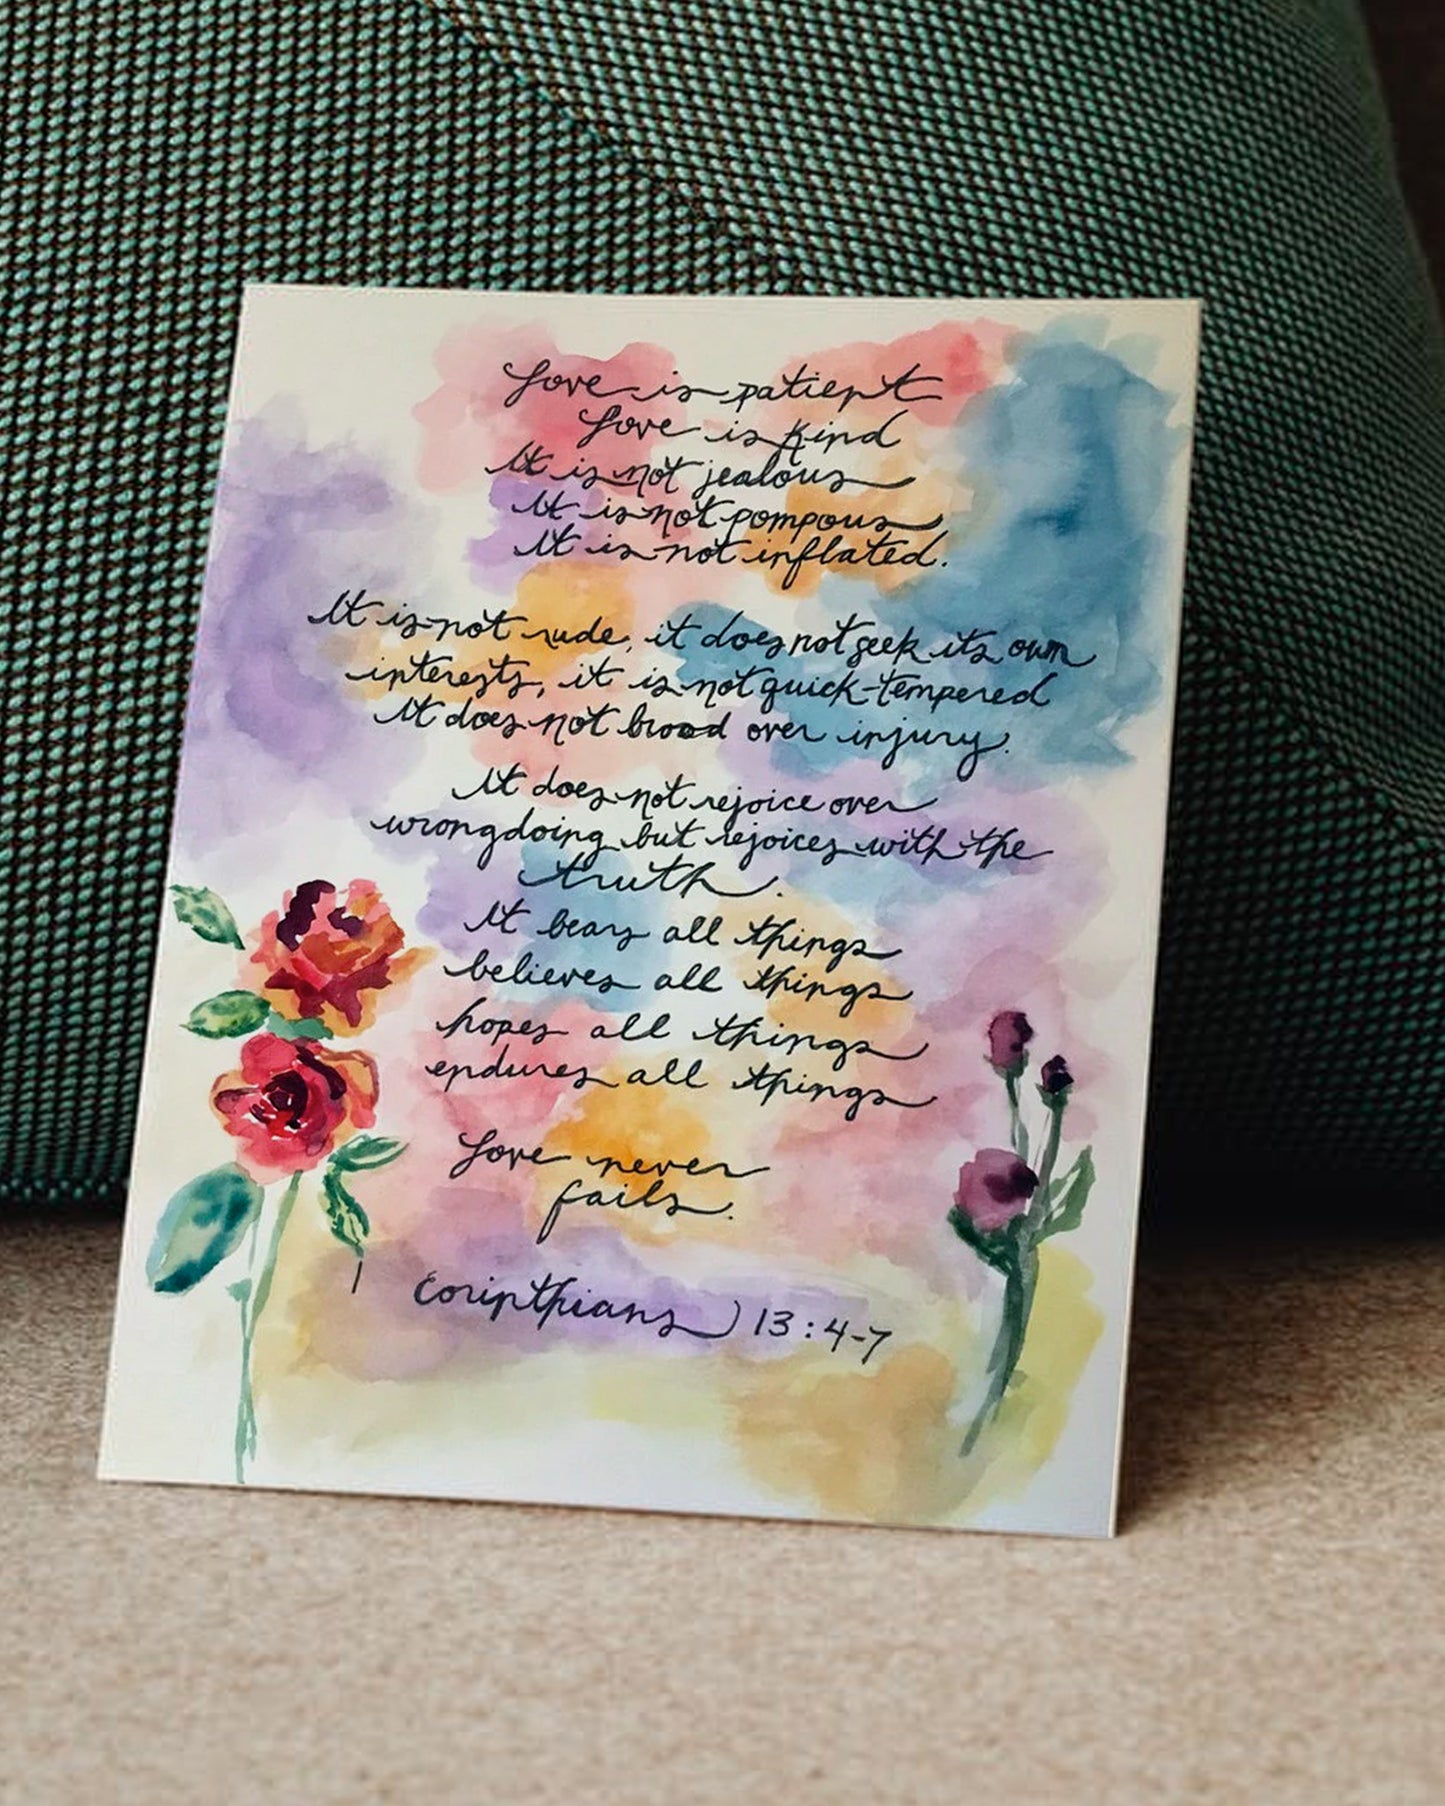 Love is patient
Love is kind
It is not jealous
It is not pompous
It is not inflated.
It is not rude, it does not seek its own
interests, it is not quick-tempered
It does not brood over injury.
It does not rejoice over
wrongdoing but rejoices with the
truth.
It bears all things
believes all things
hopes all things
endures all things
Love never
fails.
1 Corinthians 13:4-7